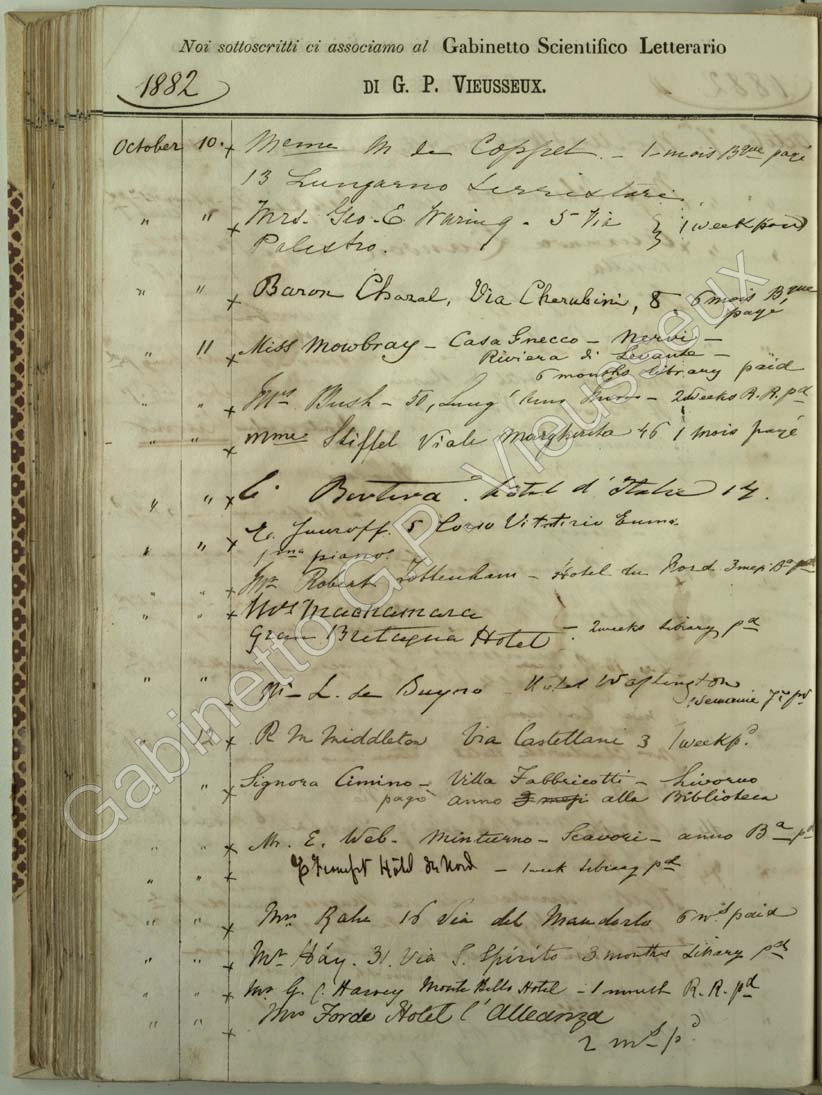 Noi sottoscritti ci associamo al Gabinetto Scientifico Letterario
1882
DI G. P. VIEUSSEUX.
October 10. x Meme M de Coppet. - 1 mois Bque payé
13 Lungarno Serristori
" " x Mrs. Geo. E. Waring. 5 Via } 1 week paid
Palestro.
" " x Baron Chazal, Via Cherubini, 8, 6 mois Bque
payé
" 11 x Miss Mowbray - Casa Gnecco - Nervi -
Riviera di Levante -
6 months library paid
" " x Mrs Bush - 50, Lung' - 2 weeks R. R. pd
" " x Mme Stiffel Viale Margherita 46 1 mois payé
" " x Hôtel d'Italie 14.
" " x 5 Corso Vittorio Eman.
pmo piano.
" " x Mr Robert Tottenham - Hotel du Nord 3 mesi
" " x Mrs Macnamara
Gran Bretagna Hotel - 2 weeks library pd
" " L. de - Hotel Washington
1 semaine pd
" " x R M Middleton Via Castellani 3 1 week pd
" " x Signora Cimino - Villa Fabbricotti - Livorno
pagò anno 3 mesi alla Biblioteca
" " x Mr. E. Web - Minturno - Scavori - anno Ba pd
" " x Hôtel du Nord - 1 week library pd
" " x Mrs 16 Via del Mandorlo 6 ms paid
" " x Mr Háy. 31. Via S. Spirito 3 months Library pd
" " x Mr G. C. Harvey Monte Bello Hotel - 1 month R. R. pd
" " x Mrs Forde Hotel l'Alleanza
2 ms pd
Gabinetto G.P. Vieusseux